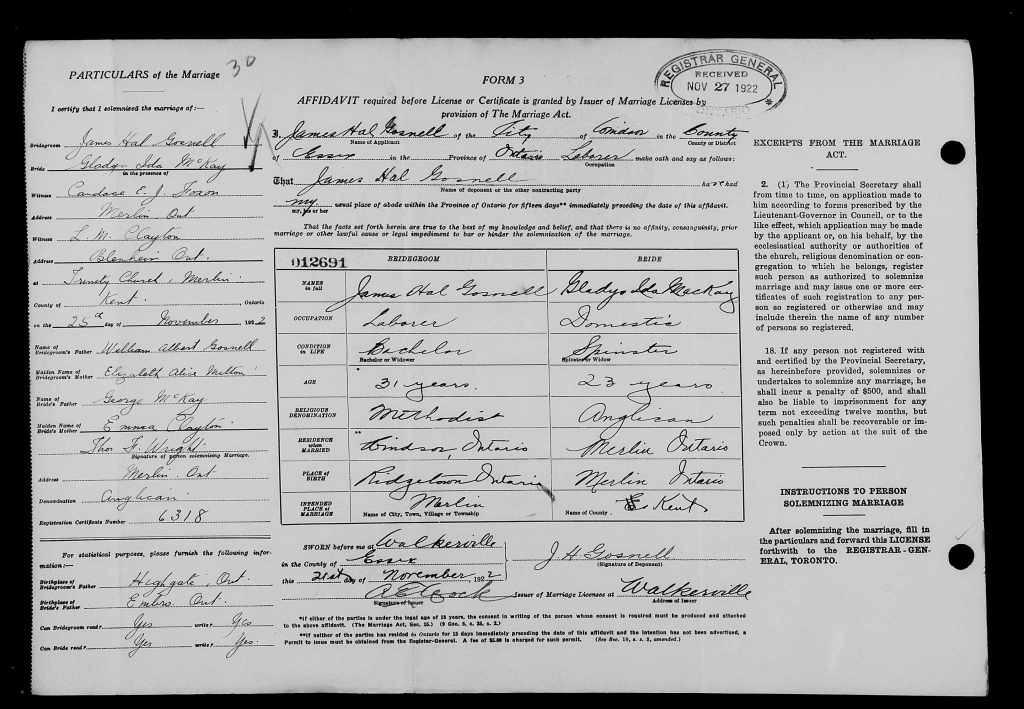 PARTICULARS of the Marriage
30
I certify that I solemnized the marriage of:—
Bridegroom James Hal Gosnell
Bride Gladys Ida McKay
in the presence of
Witness Candace E. J. Foxon
Address Merlin Ont
Witness L. M. Clayton
Address Blenheim Ont.
at Trinity Church, Merlin
County of Kent, Ontario
on the 25th day of November 1922
Name of Bridegroom's Father William Albert Gosnell
Maiden Name of Bridegroom's Mother Elizabeth Alice Mitton
Name of Bride's Father George McKay
Maiden Name of Bride's Mother Emma Clayton
Thos. F. Wright
Signature of person solemnizing Marriage.
Address Merlin Ont
Denomination Anglican
Registration Certificate Number 6318
For statistical purposes, please furnish the following information:—
Birthplace of Bridegroom's Father Highgate, Ont.
Birthplace of Bride's Father Embro Ont.
Can Bridegroom read? Yes write? Yes
Can Bride read? Yes write? Yes.
FORM 3
REGISTRAR GENERAL
RECEIVED
NOV 27 1922
ONTARIO
AFFIDAVIT required before License or Certificate is granted by Issuer of Marriage Licenses by
provision of The Marriage Act.
I, James Hal Gosnell of the City of Windsor in the County
Name of Applicant County or District
of Essex in the Province of Ontario Laborer make oath and say as follows:
Occupation
That James Hal Gosnell has or had
Name of deponent or the other contracting party
my usual place of abode within the Province of Ontario for fifteen days** immediately preceding the date of this affidavit.
my, his or her
That the facts set forth herein are true to the best of my knowledge and belief, and that there is no affinity, consanguinity, prior
marriage or other lawful cause or legal impediment to bar or hinder the solemnization of the marriage.
012691 BRIDEGROOM BRIDE
NAMES in full James Hal Gosnell Gladys Ida MacKay
OCCUPATION Laborer Domestic
CONDITION in LIFE Bachelor Spinster
Bachelor or Widower Spinster or Widow
AGE * 31 years. 23 years
RELIGIOUS DENOMINATION Methodist Anglican
RESIDENCE when MARRIED ** Windsor, Ontario Merlin Ontario
PLACE of BIRTH Ridgetown Ontario Merlin Ontario
INTENDED PLACE of MARRIAGE Merlin Kent
Name of City, Town, Village or Township Name of County
SWORN before me at Walkerville
in the County of Essex
this 21st day of November, 1922
J. H. Gosnell
(Signature of Deponent)
Signature of Issuer
Issuer of Marriage Licenses at Walkerville
Address of Issuer
*If either of the parties is under the legal age of 18 years, the consent in writing of the person whose consent is required must be produced and attached
to the above affidavit. (The Marriage Act, Sec. 15.) (9 Geo. 5, c. 35, s. 2).
**If neither of the parties has resided in Ontario for 15 days immediately preceding the date of this affidavit and the intention has not been advertised, a
Permit to issue must be obtained from the Registrar-General. A fee of $5.00 is charged for such permit. (See Sec. 19, s.s. 2, amended.)
EXCERPTS FROM THE MARRIAGE
ACT.
2. (1) The Provincial Secretary shall
from time to time, on application made to
him according to forms prescribed by the
Lieutenant-Governor in Council, or to the
like effect, which application may be made
by the applicant or, on his behalf, by the
ecclesiastical authority or authorities of
the church, religious denomination or con-
gregation to which he belongs, register
such person as authorized to solemnize
marriage and may issue one or more cer-
tificates of such registration to any per-
son so registered or otherwise and may
include therein the name of any number
of persons so registered.
18. If any person not registered with
and certified by the Provincial Secretary,
as hereinbefore provided, solemnizes or
undertakes to solemnize any marriage, he
shall incur a penalty of $500, and shall
also be liable to imprisonment for any
term not exceeding twelve months, but
such penalties shall be recoverable or im-
posed only by action at the suit of the
Crown.
INSTRUCTIONS TO PERSON
SOLEMNIZING MARRIAGE
After solemnizing the marriage, fill in
the particulars and forward this LICENSE
forthwith to the REGISTRAR-GEN-
ERAL, TORONTO.